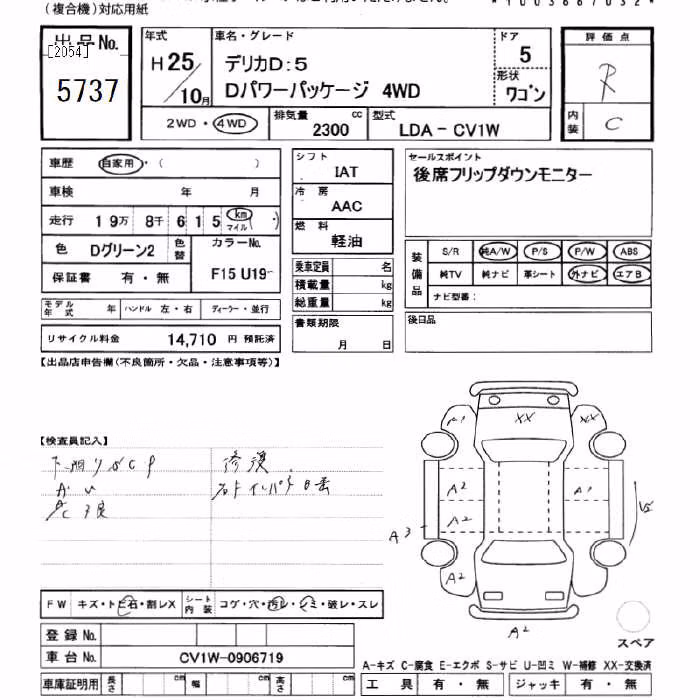 (複合機)対応用紙
*1003687032*
出品No.
[2054]
5737
年式
H25/10月
車名・グレード
デリカD:5
Dパワーパッケージ 4WD
ドア
5
形状
ワゴン
評価点
R
内装
C
2WD・4WD
排気量
2300 cc
型式
LDA - CV1W
車歴 自家用・( )
車検 年 月
走行 19万 8千 615 km マイル ( )
色 Dグリーン2 色替
カラーNo.
F15 U19
保証書 有・無
モデル年式 年 ハンドル 左・右 ディーラー・並行
リサイクル料金 14,710 円 預託済
シフト
IAT
冷房
AAC
燃料
軽油
乗車定員 名
積載量 kg
総重量 kg
書類期限
月 日
セールスポイント
後席フリップダウンモニター
装備品
S/R 純A/W P/S P/W ABS
純TV 純ナビ 革シート 外ナビ エアB
ナビ型番:
後日品
【出品店申告欄(不良箇所・欠品・注意事項等)】
【検査員記入】
修復
A1
XX
XX
A2
A2
A1
A3
A2
A2
スペア
FW キズ・トビ石・割レX
シート内装 コゲ・穴・汚レ・シミ・破レ・スレ
登録No.
車台No. CV1W-0906719
車庫証明用 長さ cm 幅 cm 高さ cm
A-キズ C-腐食 E-エクボ S-サビ U-凹ミ W-補修 XX-交換済
工具 有・無 ジャッキ 有・無